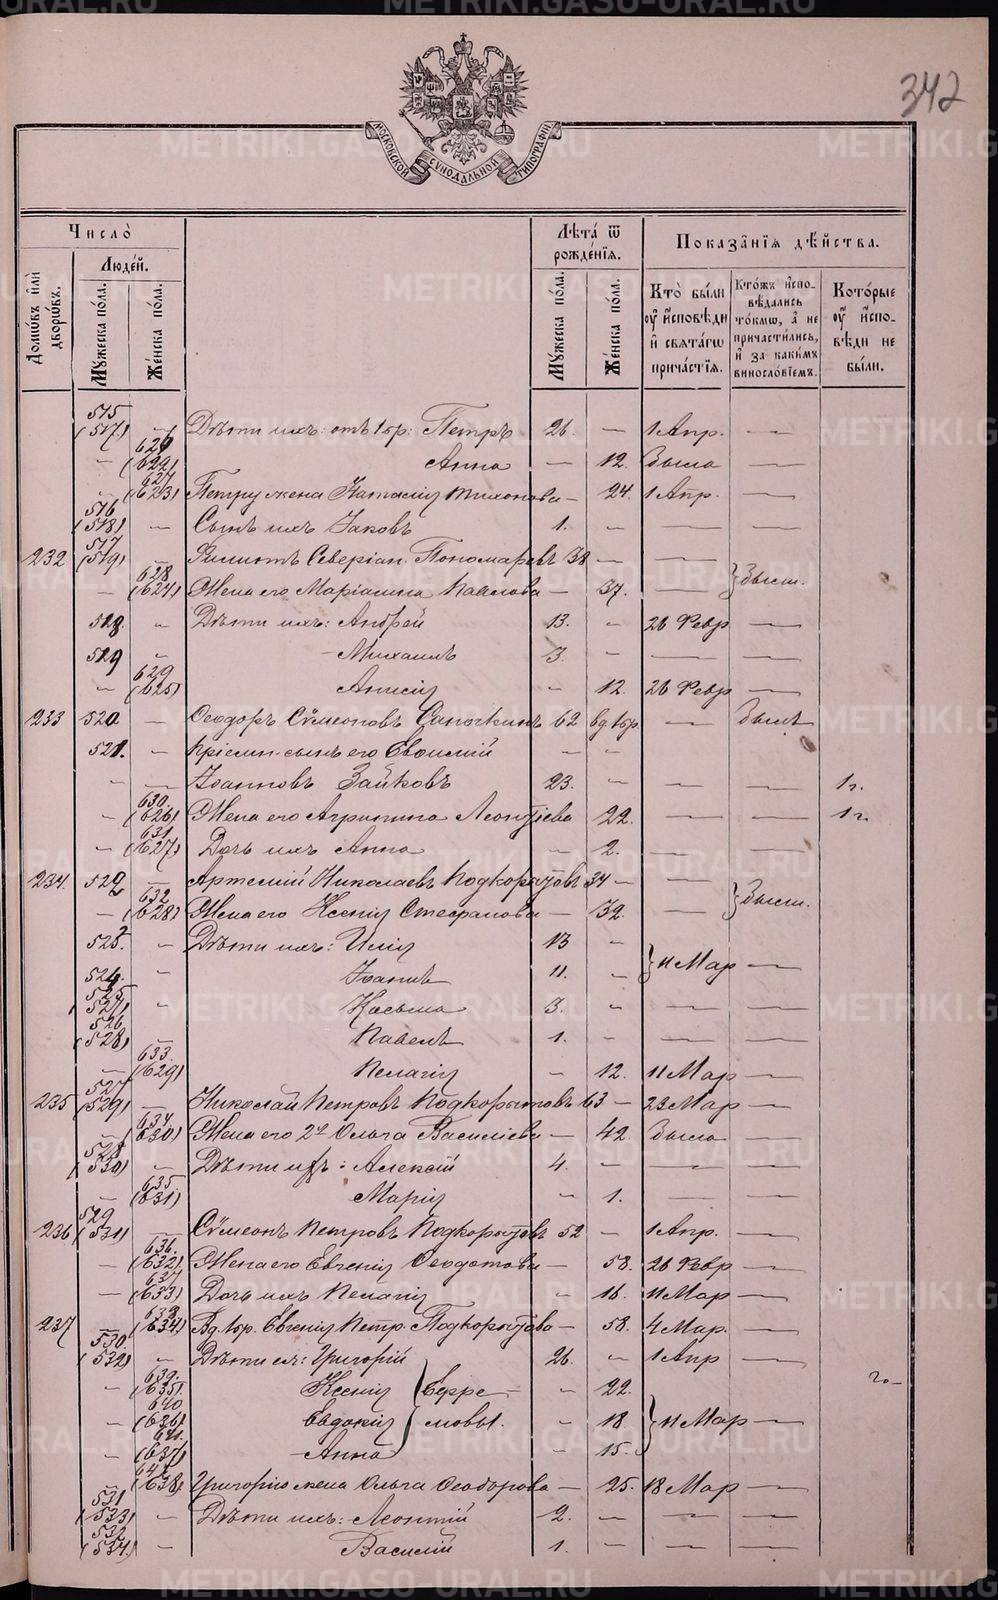 342
МОСКОВСКОЙ СѴНОДАЛЬНОЙ ТИПОГРАФІИ
Число
Людей.
Домѡвъ или дворѡвъ.
Мꙋжеска пола.
Женска пола.
Лѣта ѿ рожденїѧ.
Мꙋжеска пола.
Женска пола.
Показанїѧ дѣйства.
Кто были ᲂу исповѣди и свѧтагѡ причастїѧ.
Ктожъ исповѣдались токмѡ, а не причастились, и за какимъ винословїемъ.
Которые ᲂу исповѣди не были.
515 (517) — Дѣти ихъ: отъ 1 бр: Петръ 26. — 1 Апр. —
— 626 (622) Анна — 12. Была —
627 (623) Петру жена Наталія Тихонова — 24. 1 Апр. —
516 (518) — Сынъ ихъ Іаковъ 1. — — —
232 517 (519) — Филиппъ Северіан. Пономаревъ 38 — —
— 628 (624) Жена его Маріанна Павлова — 37. — } Выш.
518. — Дѣти ихъ: Андрей 13. — 26 Февр —
519 — Михаилъ 3. — — —
— 629 (625) Анисія — 12. 26 Февр —
233 520. — Ѳеодоръ Сѵмеоновъ Сапочкинъ 62 вд. 1 бр. — Былъ
521. — Пріемн. сынъ его Евѳимій — —
— — Іоанновъ Зайковъ 23. — — — 1 г.
— 630. (626) Жена его Агрипина Леонтіева 22. — — 1 г.
— 631 (627) Дочь ихъ Анна — 2. — —
234. 522 — Артемій Николаевъ Подкорытовъ 34 — —
— 632 (628) Жена его Ксенія Стефанова — 32. — } Выш.
523. — Дѣти ихъ: Илія 13 —
524. — Іоаннъ 11. — } 11 Мар —
525 (527) — Касьма 3. — — —
526 (528) — Павелъ 1. — — —
— 633. (629) Пелагія — 12. 11 Мар —
235 527 (529) — Николай Петровъ Подкорытовъ 63 — 23 Мар —
— 634 (630) Жена его 2я Ольга Василіева — 42. Была —
528 (530) — Дѣти ихъ: Алексій 4. — — —
— 635. (631) Марія — 1. — —
236 529 (531) — Сѵмеонъ Петровъ Подкорытовъ 52 — 1 Апр. —
— 636. (632) Жена его Евгенія Ѳеодотова — 58. 26 Февр —
— 637 (633) Дочь ихъ Пелагія — 16. 11 Мар —
237 — 638 (634) Вд. 1 бр. Евгенія Петр. Подкорытова — 58. 4 Мар. —
530. (532) — Дѣти ея: Григорій 26. — 1 Апр —
— 639. (635) Ксенія } Ефре — 22.
— 640 (636) Евдокія } мовы. — 18 } 11 Мар —
— 641. (637) Анна — 15.
— 642 (638) Григорію жена Ольга Ѳеодорова — 25. 18 Мар —
531 (533) — Дѣти ихъ: Леонтій 2. — — —
532 (534) — Василій 1. — — —
METRIKI.GASO-URAL.RU